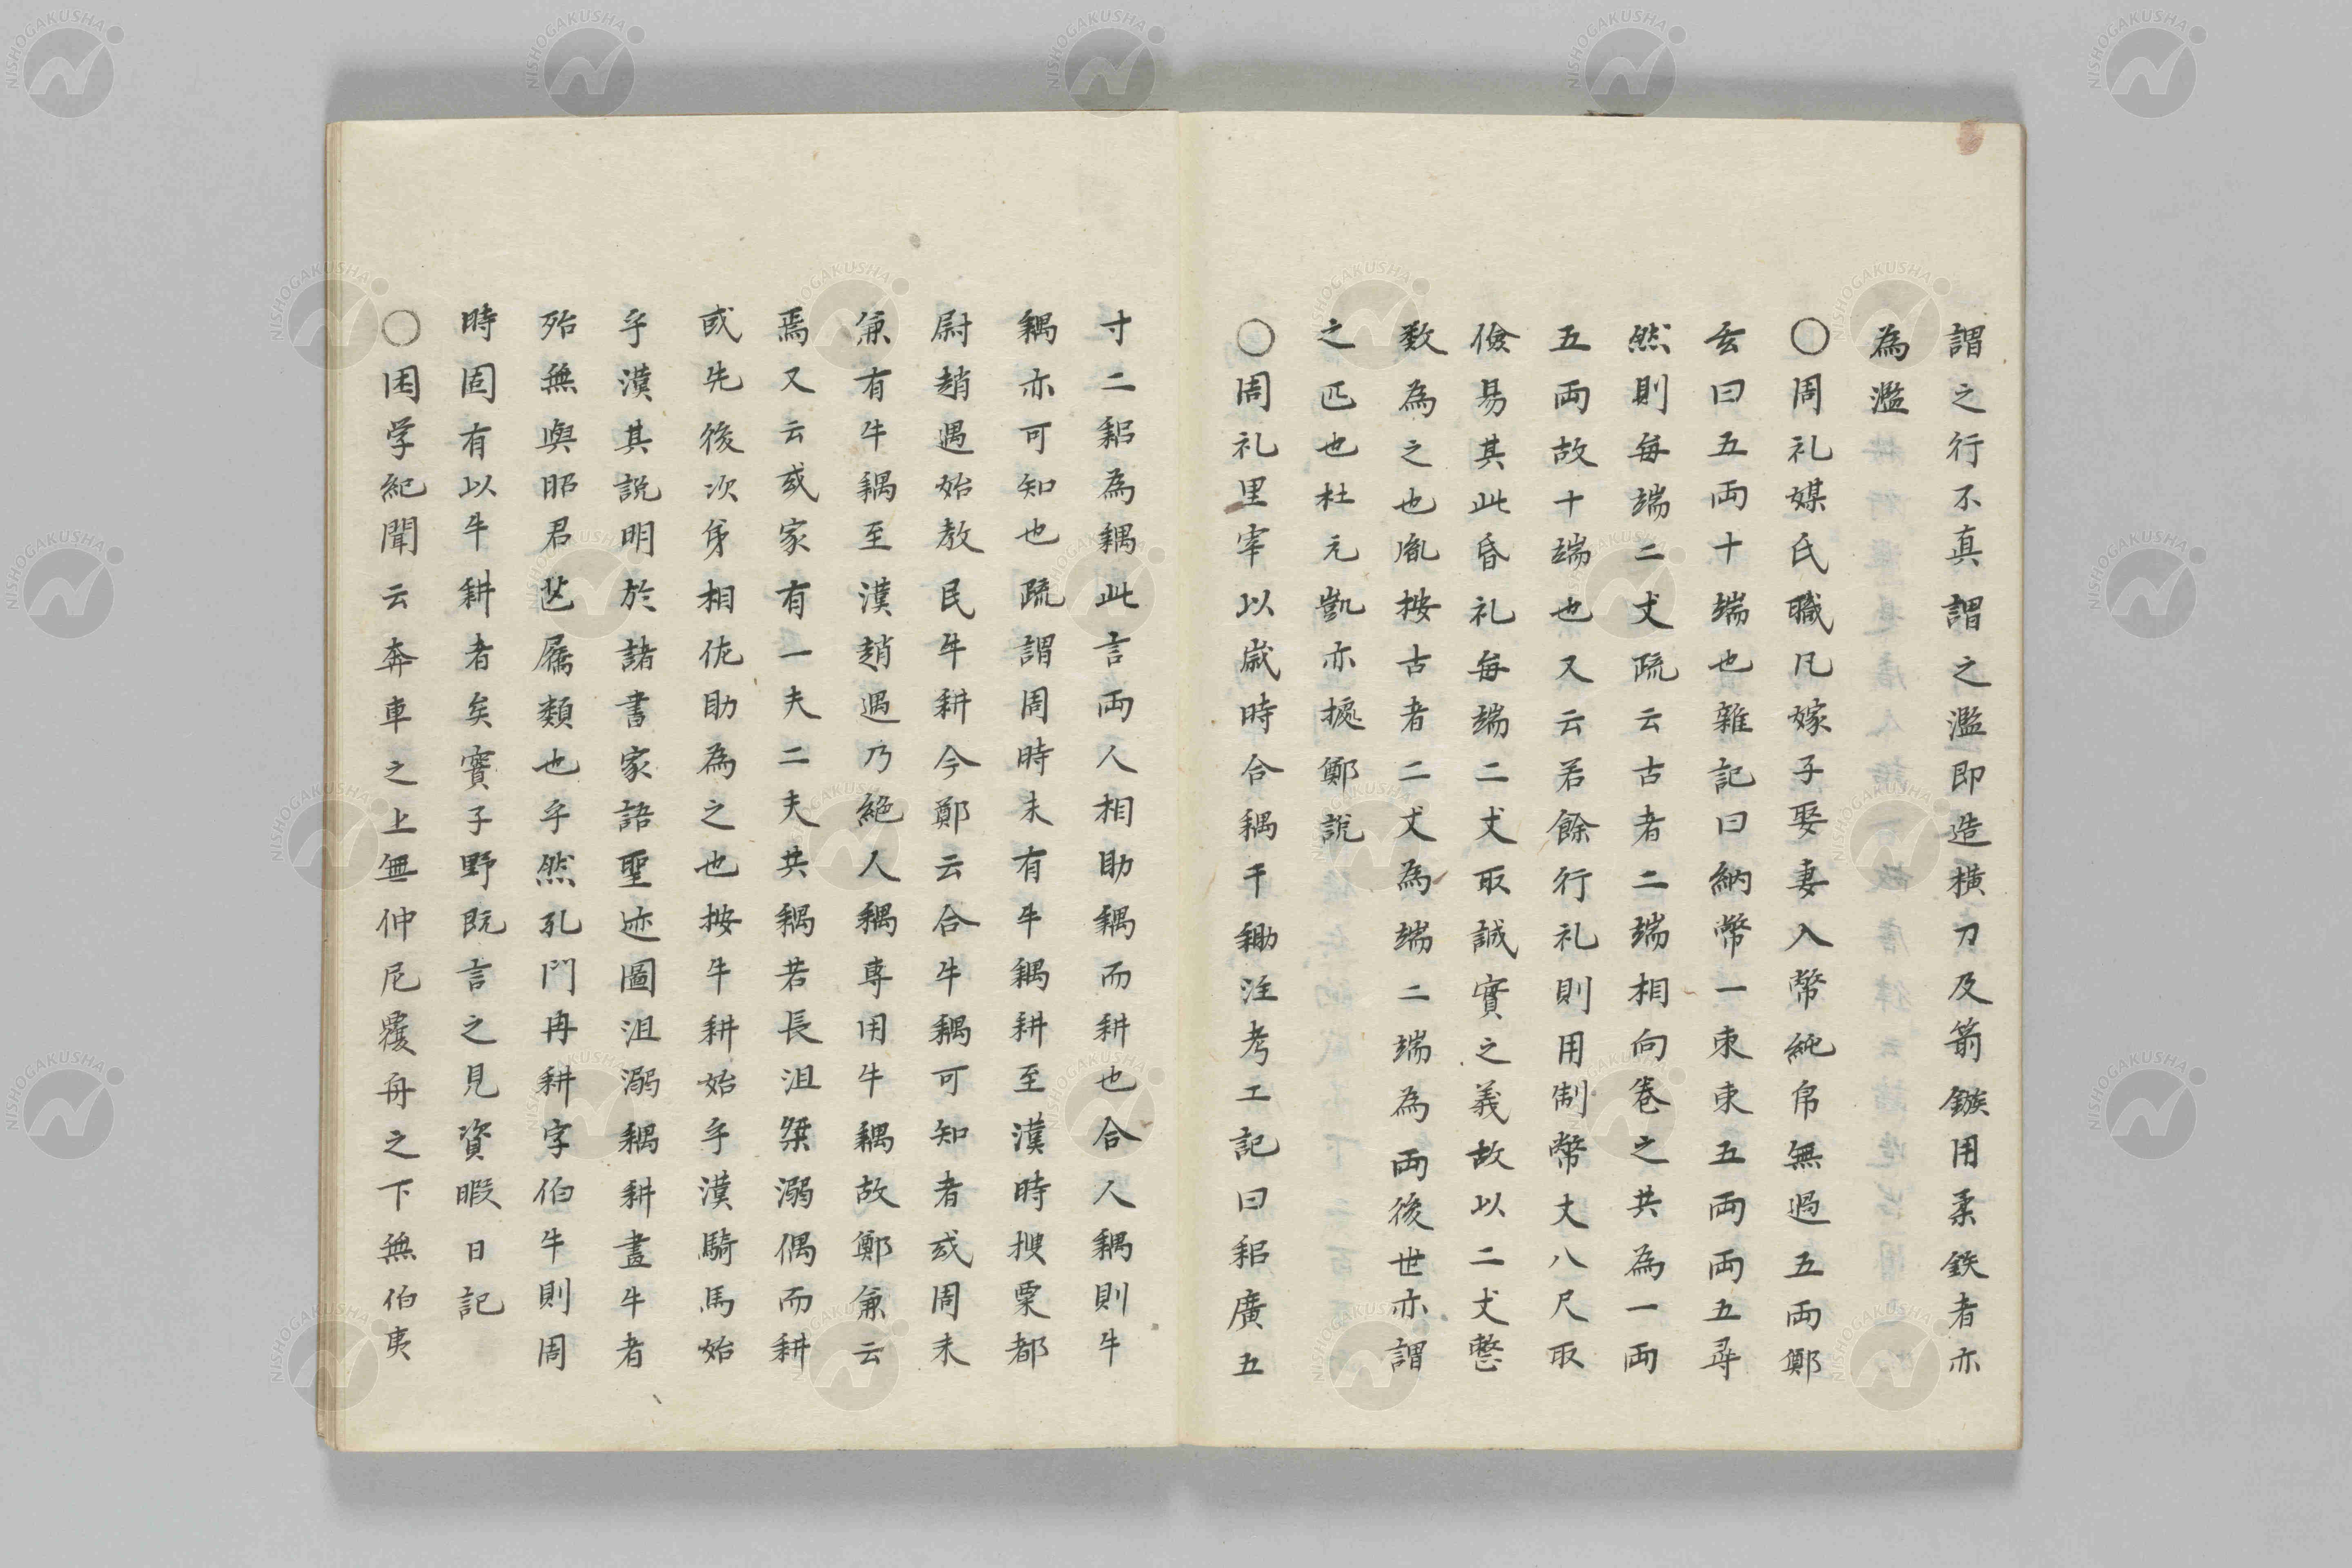 謂之行不真謂之濫即造横刀及箭鏃用柔鉄者亦
為濫
○周礼媒氏職凡嫁子娶妻入幣純帛無過五両鄭
玄曰五両十端也雜記曰納幣一束束五両両五尋
然則毎端二丈疏云古者二端相向卷之共為一両
五両故十端也又云若餘行礼則用制幣丈八尺取
儉易其此昏礼毎端二丈取誠實之義故以二丈整
数為之也胤按古者二丈為端二端為両後世亦謂
之匹也杜元凱亦據鄭説
○周礼里宰以歳時合耦于耡注考工記曰耜廣五
寸二耜為耦此言両人相助耦而耕也合人耦則牛
耦亦可知也疏謂周時未有牛耦耕至漢時搜粟都
尉趙過始教民牛耕今鄭云合牛耦可知者或周末
兼有牛耦至漢趙過乃絶人耦専用牛耦故鄭兼云
焉又云或家有一夫二夫共耦若長沮桀溺偶而耕
或先後次身相佐助為之也按牛耕始乎漢騎馬始
乎漢其説明於諸書家語聖迹圖沮溺耦耕畫牛者
殆無與昭君屬類也乎然孔門冉耕字伯牛則周
時固有以牛耕者矣實子野既言之見資暇日記
○困学紀聞云奔車之上無仲尼覆舟之下無伯夷